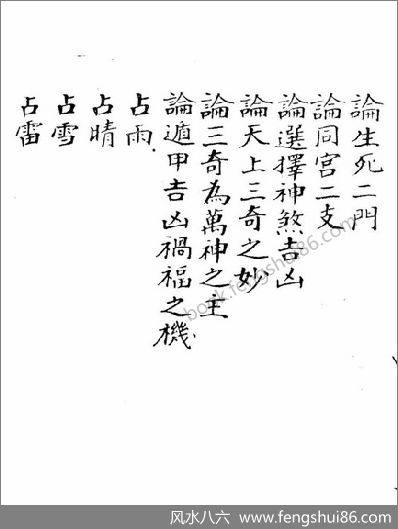 論生死二門
論同宮二支
論選擇神煞吉凶
論天上三奇之妙
論三奇為萬神之主
論遁甲吉凶禍福之機
占雨
占晴
占雪
占雷
book.fengshui86.com
风水八六 - www.fengshui86.com